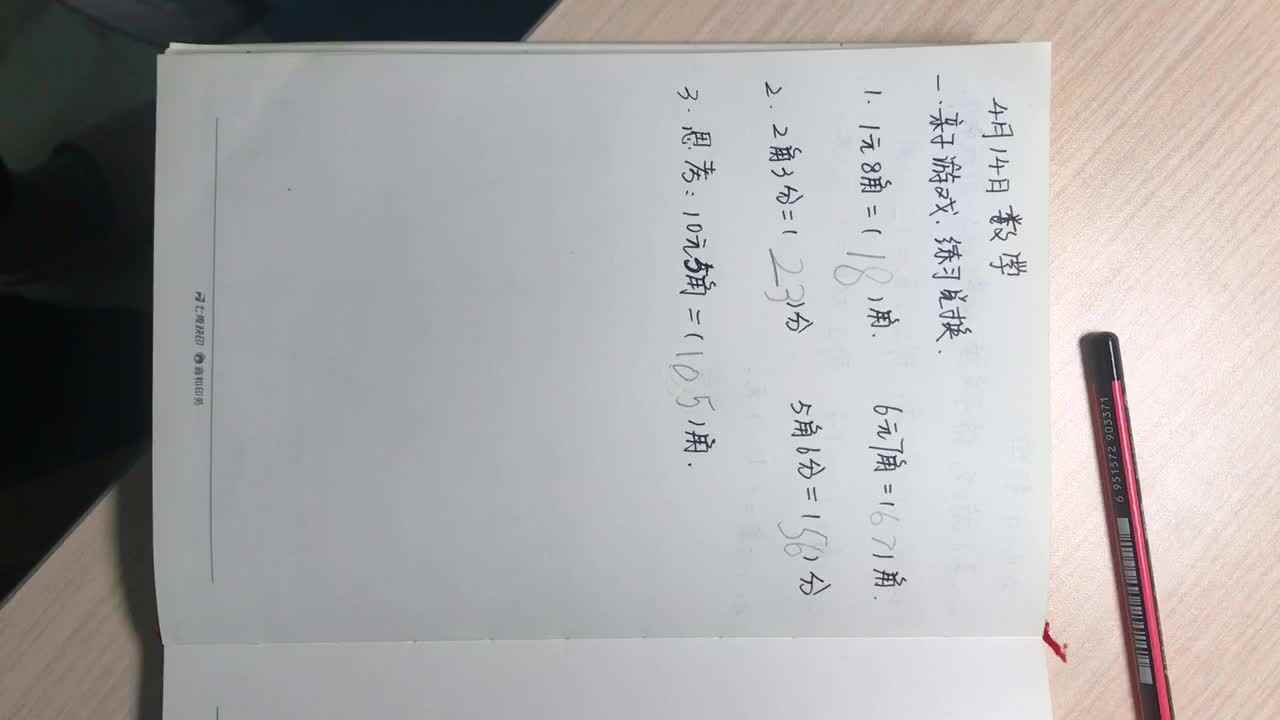 4月14日 数学
一.亲子游戏.练习兑换.
1. 1元8角=(18)角. 6元7角=(67)角.
2. 2角3分=(23)分 5角6分=(56)分
3. 思考:10元5角=(105)角.
6 951572 903371